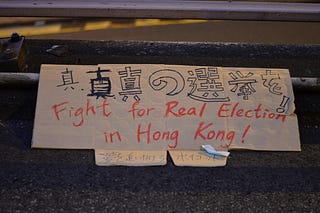 真の選挙を!
Fight for Real Election
in Hong Kong!